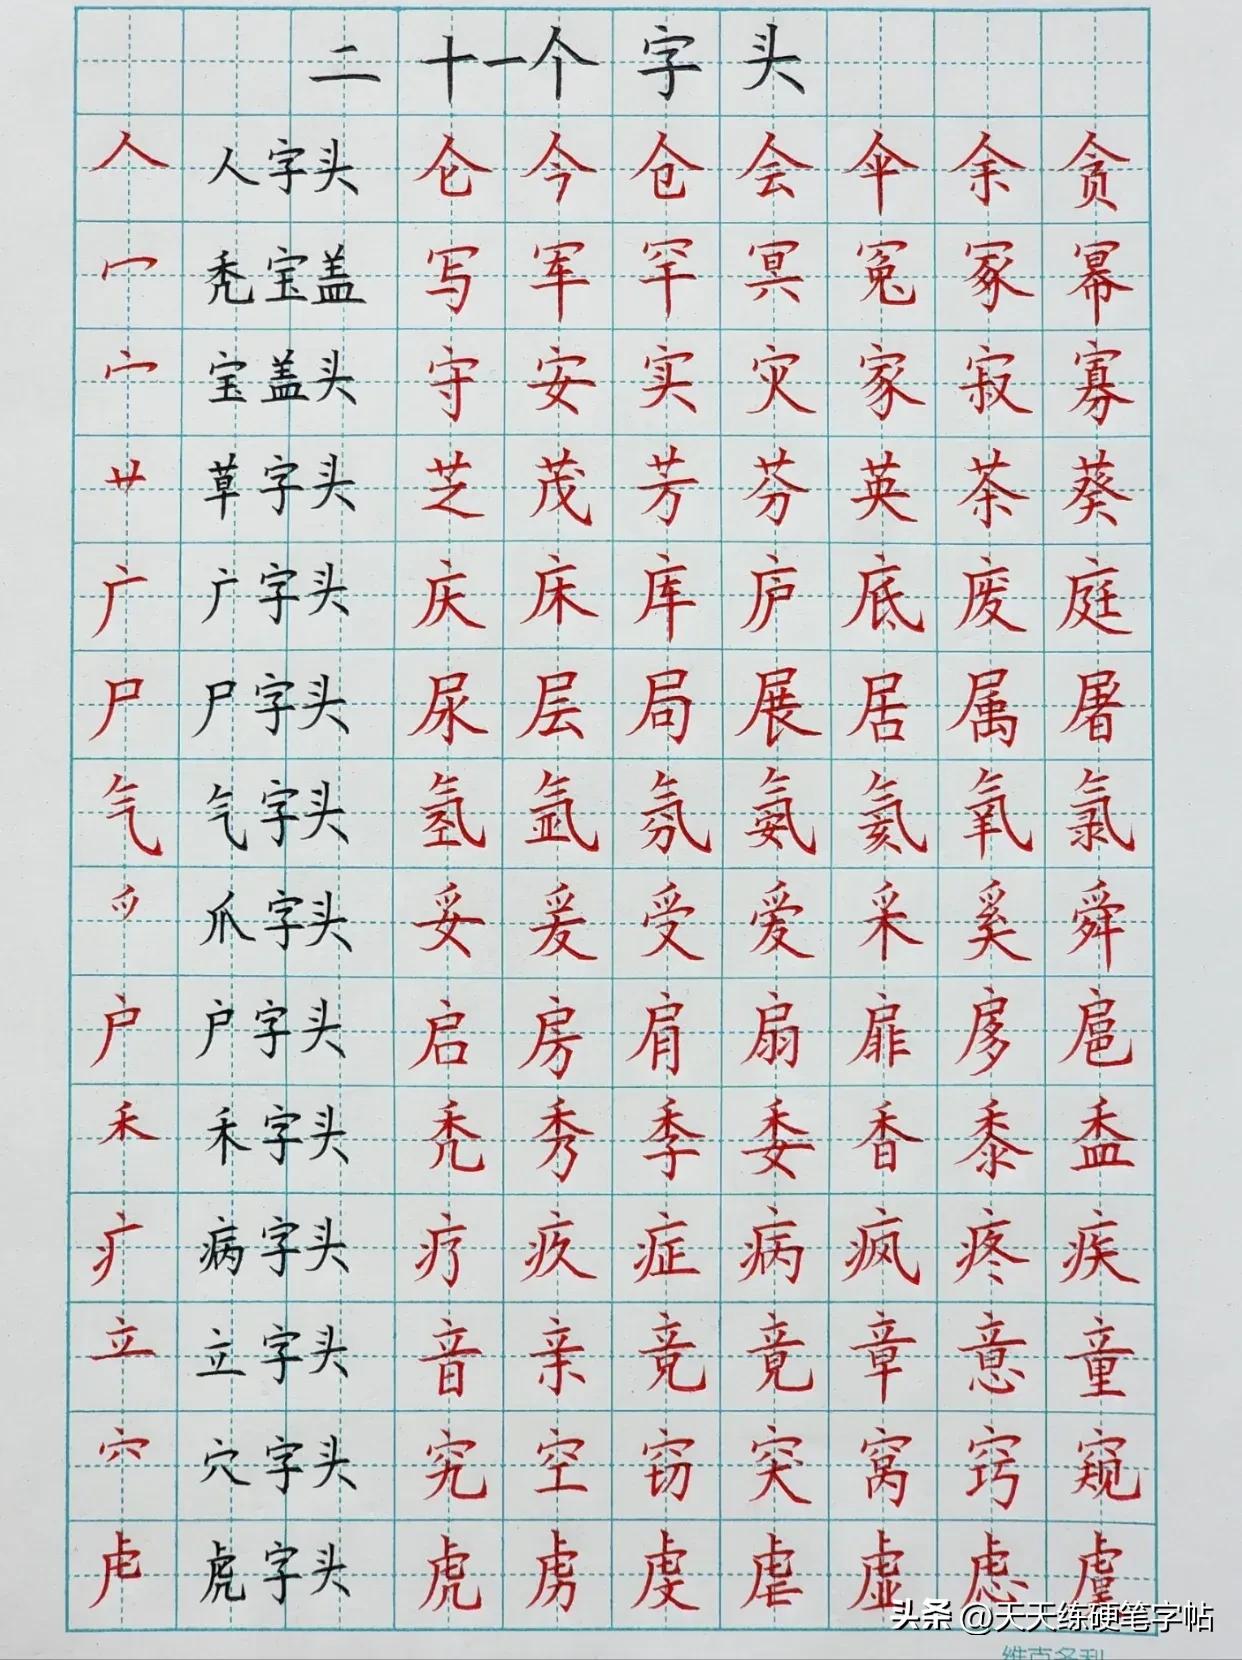 二十一个字头
人 人字头 仑 今 仓 会 伞 余 贪
冖 秃宝盖 写 军 罕 冥 冤 冢 幂
宀 宝盖头 守 安 实 灾 家 寂 寡
艹 草字头 芝 茂 芳 芬 英 茶 葵
广 广字头 庆 床 库 庐 底 废 庭
尸 尸字头 尿 层 局 展 居 属 屠
气 气字头 氢 氛 氨 氦 氧 氯
爫 爪字头 妥 爰 受 爱 采 奚 舜
户 户字头 启 房 肩 扇 扉 扅 扈
禾 禾字头 秃 秀 季 委 香 黍 盉
疒 病字头 疗 疚 症 病 疯 疼 疾
立 立字头 音 亲 竞 竟 章 意 童
穴 穴字头 究 空 窃 突 窝 窍 窥
虍 虎字头 虎 虏 虔 虐 虚 虑
头条 @天天练硬笔字帖